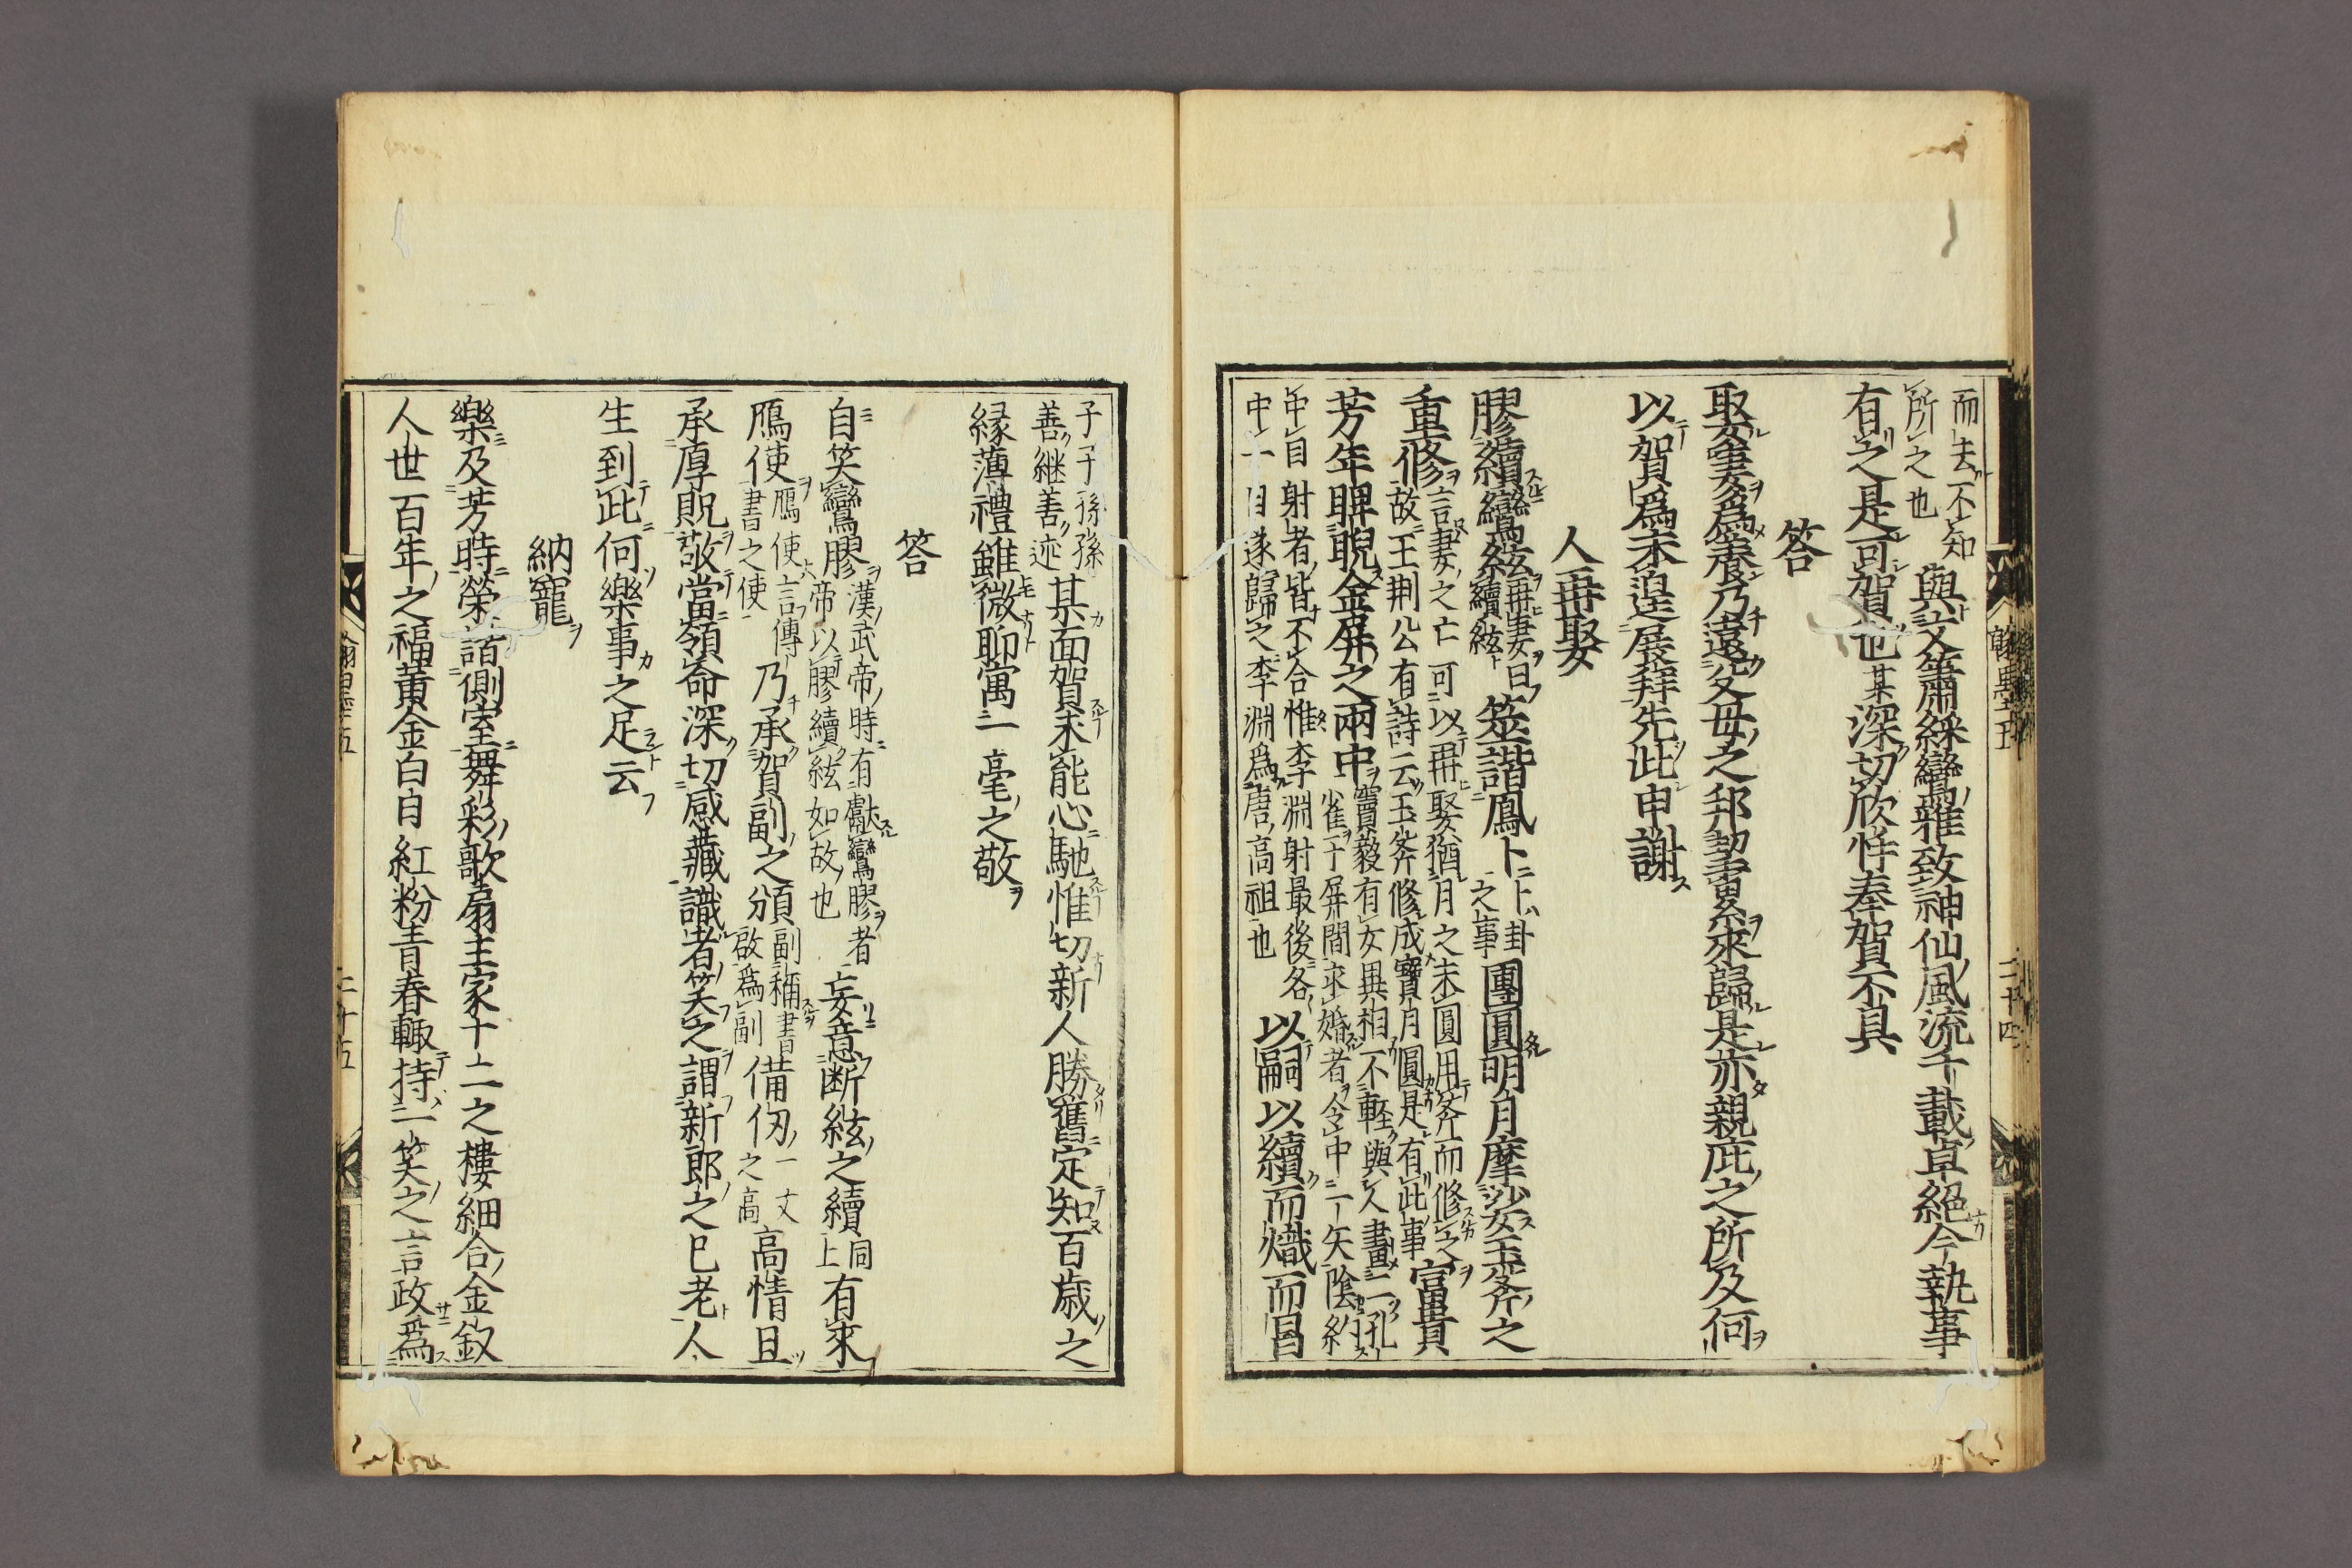 而去不知
所之也
與文簫綵鸞雖致神仙風流千載卓絕今執事
有之是可賀也某深切欣忭奉賀不具
答
娶妻爲養乃遠父母之邦挈累來歸是亦親庇之所及何
以賀爲未遑展拜先此申謝
人再娶
膠續鸞絃
再妻曰
續絃
筮諧鳳卜
卜卦
之事
團圓明月摩沙玉斧之
重修
言妻之亡可以再娶猶月之未圓用斧而修之
故王荆公有詩云玉斧修成寶月圓是有此事
富貴
芳年睥睨金屏之兩中
竇毅有女異相不輕與人畫二孔
雀于屏間求婚者令中二矢陰約
中目射者皆不合惟李淵射最後各
中一目遂歸之李淵爲唐高祖也
以嗣以續而熾而昌
子子孫孫
善繼善述
某面賀未能心馳惟切新人勝舊定知百歲之
緣薄禮雖微聊寓一毫之敬
答
自笑鸞膠
漢武帝時有獻鸞膠者
帝以膠續絃如故也
妄意断絃之續
同
上
有來
鴈使
鴈使言傳
書之使
乃承賀副之頒
副稱書
啟爲副
備仞
一丈
之高
高情且
承厚貺敬當領命深切感藏識者笑之謂新郎之已老人
生到此何樂事之足云
納寵
樂及芳時榮諧側室舞彩歌扇主家十二之樓細合金釵
人世百年之福黃金白白紅粉青春輙持一笑之言政爲
翰墨五
二十四
二十五